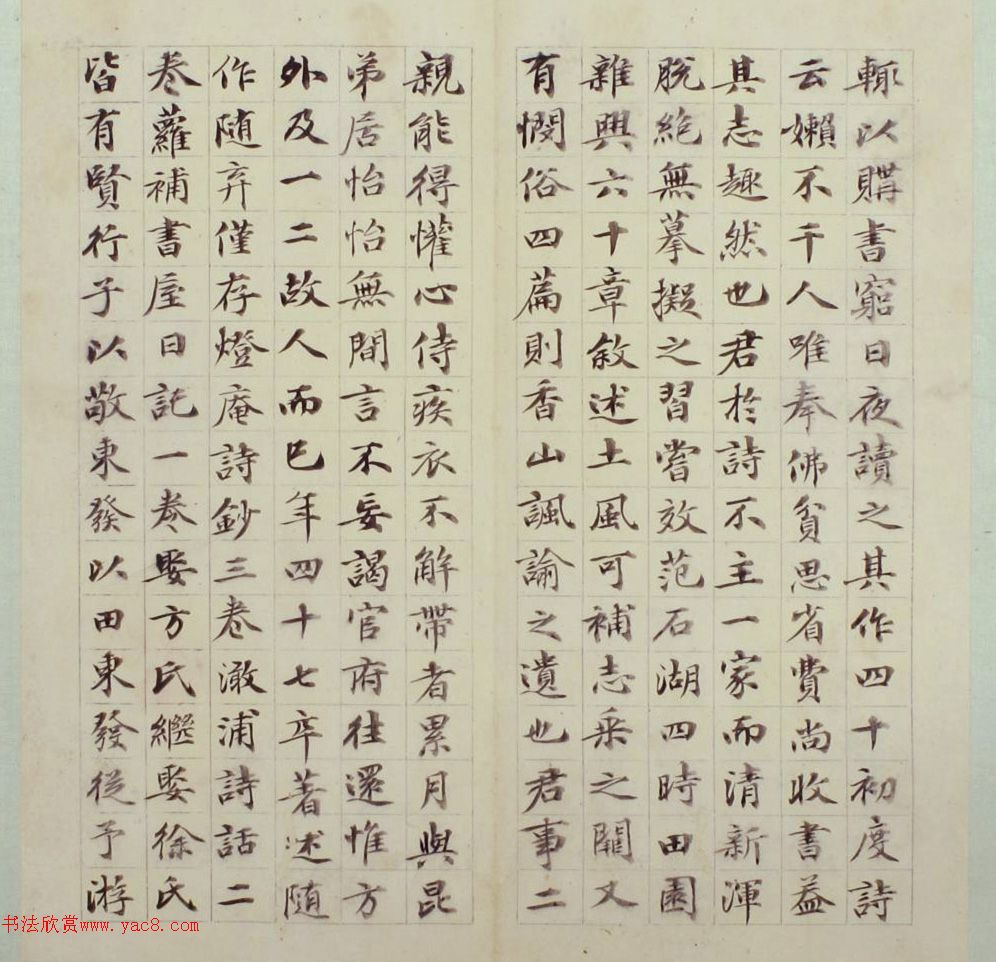 輒以購書窮日夜讀之其作四十初度詩
云嬾不干人唯奉佛貧思省費尚收書益
其志趣然也君於詩不主一家而清新渾
脫絶無摹擬之習嘗效范石湖四時田園
雜興六十章敘述土風可補志乘之闕又
有憫俗四篇則香山諷諭之遺也君事二
親能得懽心侍疾衣不解帶者累月與昆
弟居怡怡無間言不妄謁官府往還惟方
外及一二故人而已年四十七卒著述隨
作随弃僅存燈庵詩鈔三卷澉浦詩話二
卷蘿補書屋日記一卷娶方氏繼娶徐氏
皆有賢行子以敬東發以田東發從予游
书法欣赏www.yac8.com